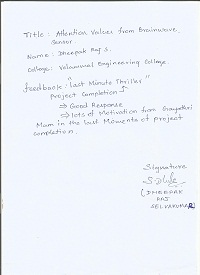 Title : Attention Values from Brainwave
Sensor
Name : Dheepak Raj S.
College : Velammal Engineering College.
Feedback : "Last Minute Thriller"
Project Completion
⇒ Good Response
⇒ lots of Motivation from Gayathri
Mam in the last Moments of project
completion.
Signature
(DHEEPAK
RAJ
SELVAKUMAR)